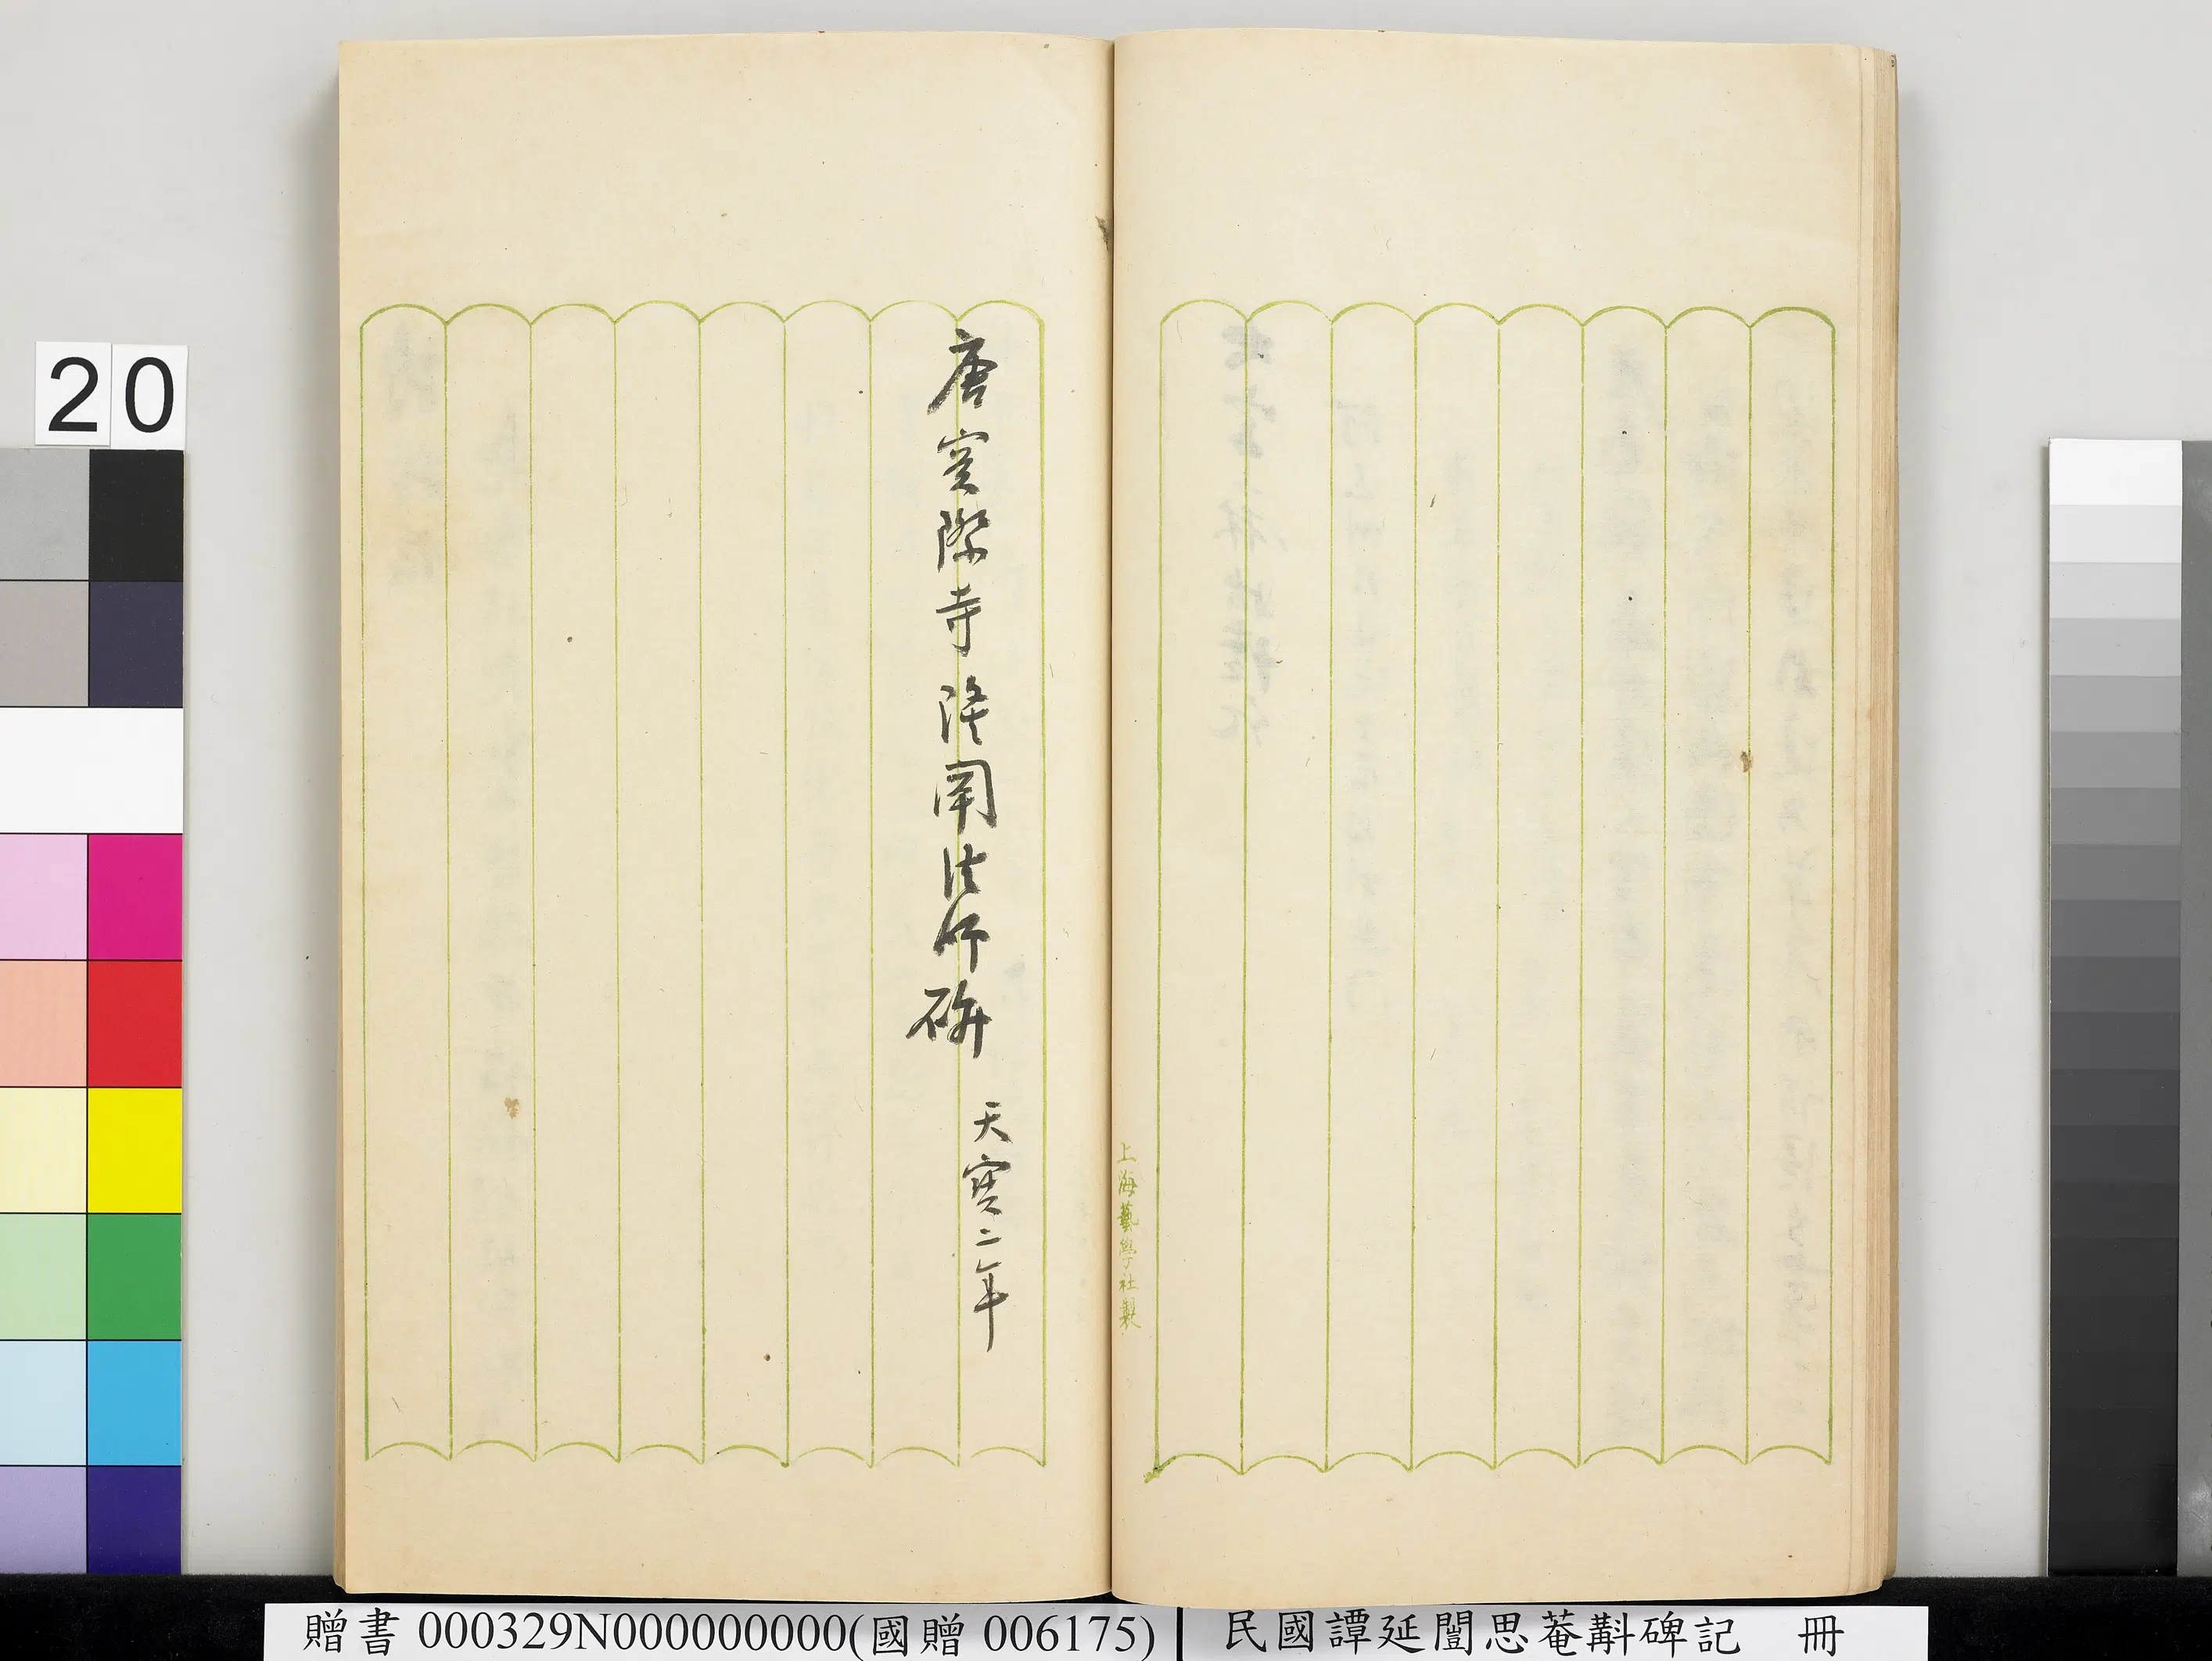 20
唐實際寺隆闡法師碑 天寶二年
上海藝學社製
贈書 000329N000000000(國贈 006175)
民國譚延闓思菴斠碑記 冊